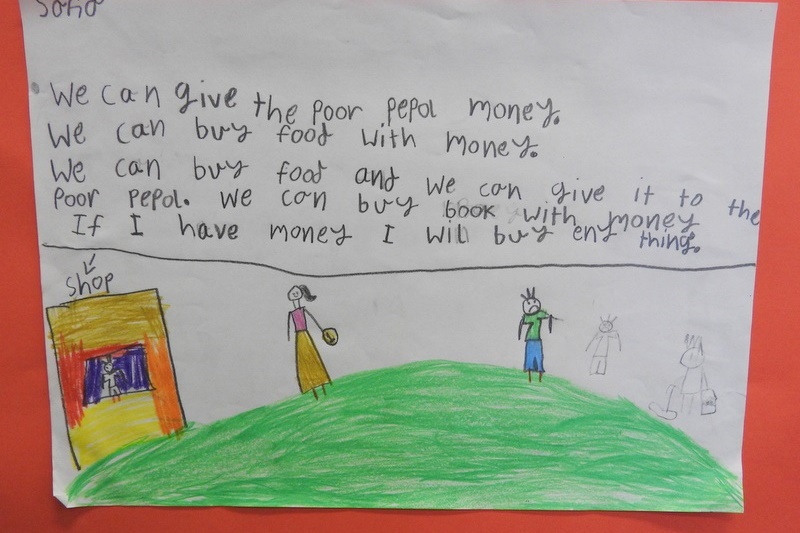 We can give the poor pepol money.
We can buy food with money.
We can buy food and we can give it to the
poor pepol. we can buy book with money
If I have money I will buy eny thing.
shop